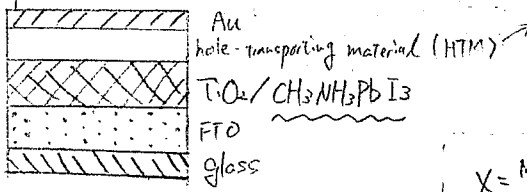 Au
hole-transporting material (HTM)
TiO2/CH3NH3PbI3
FTO
glass
X=